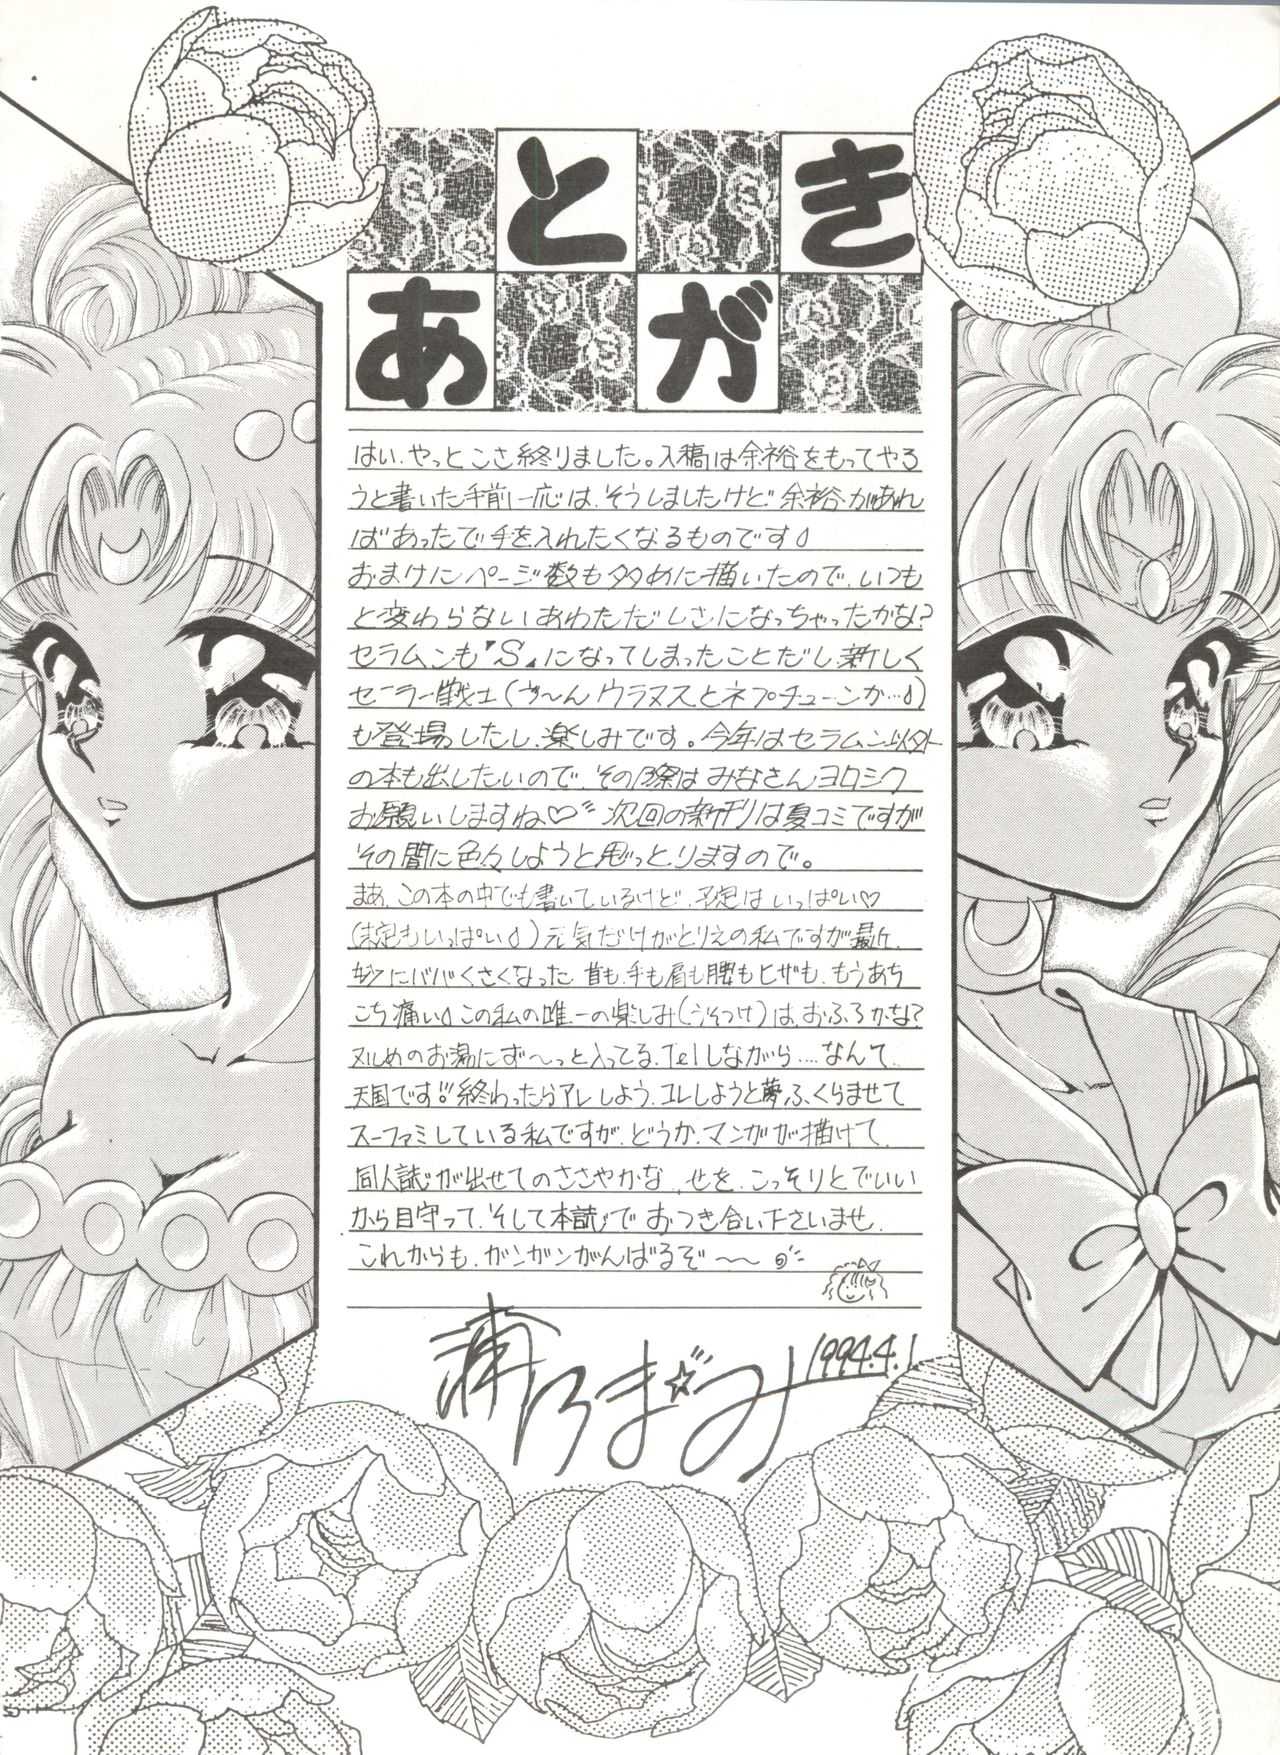 あとがき
はい、やっとこさ終りました。入稿は余裕をもってやろ
うと書いた手前一応は、そうしましたけど、余裕があれ
ばあったで手を入れたくなるものです♪
おまけにページ数も多めに描いたので、いつも
と変わらないあわただしさになっちゃったかな?
セラムンも『S』になってしまったことだし、新しく
セーラー戦士(う〜んウラヌスとネプチューンか…♪)
も登場したし、楽しみです。今年はセラムン以外
の本も出したいので、その際はみなさんヨロシク
お願いしますね♡ 次回の新刊は夏コミですが
その間に色々しようと思っとりますので。
まあ、この本の中でも書いているけど、予定はいっぱい♡
(未定もいっぱい♪)元気だけがとりえの私ですが最近、
ババくさくなった 首も、手も肩も腰もヒザも、もうあち
こち痛い♪この私の唯一の楽しみ(うそつけ)は、おふろかな?
ヌルめのお湯にず〜っと入ってる、Telしながら‥‥なんて、
天国です!!終わったらアレしよう、コレしようと夢ふくらませて
スーファミしている私ですが、どうか、マンガが描けて、
同人誌が出せてのささやかな せを、こっそりとでいい
から目守って、そして本誌でおつき合い下さいませ。
これからも、ガンガンがんばるぞ〜〜
1994.4.1